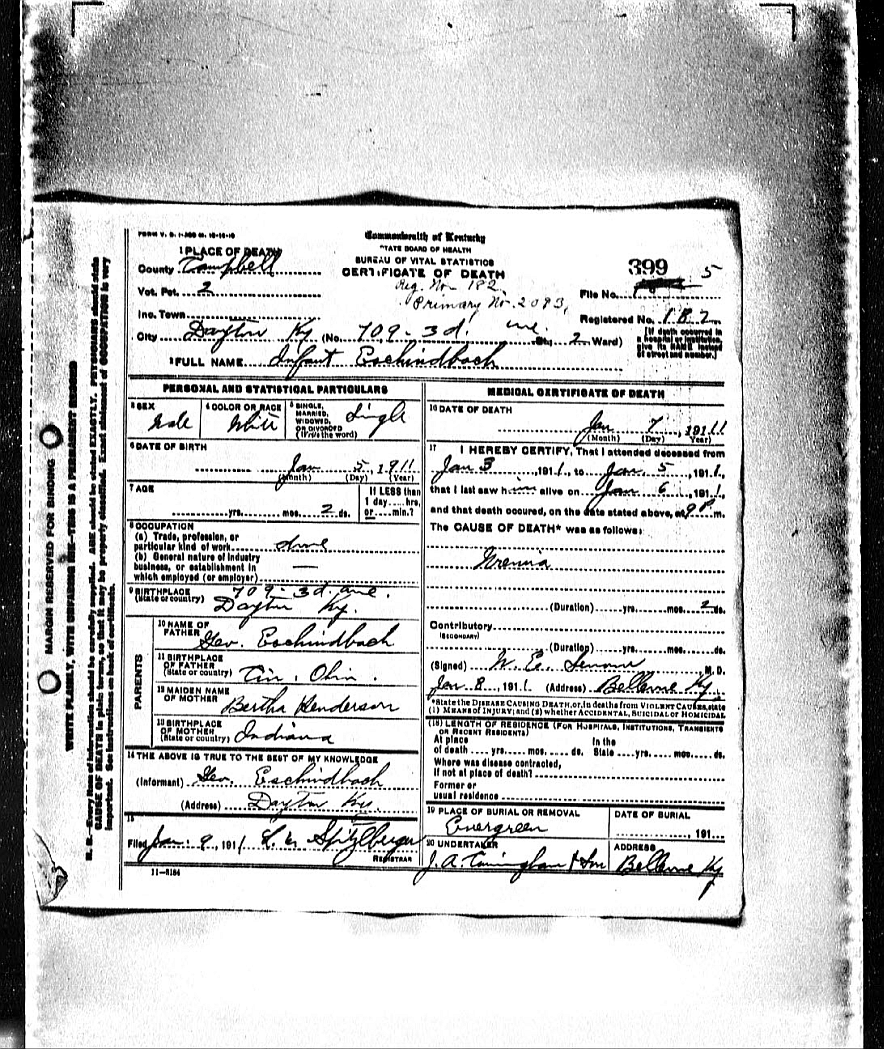 FORM V. S. 1-
Commonwealth of Kentucky
STATE BOARD OF HEALTH
BUREAU OF VITAL STATISTICS
CERTIFICATE OF DEATH
1 PLACE OF DEATH
County Campbell
Vot. Pct. 2
Inc. Town
City Dayton Ky (No. 709 - 3d. ave. St.; 2 Ward)
Reg. No. 182
Primary No. 2093,
399 5
File No.
Registered No. 182
[If death occurred in a hospital or institution, give its NAME instead of street and number.]
2 FULL NAME Infant Eschindbach
PERSONAL AND STATISTICAL PARTICULARS
3 SEX Male
4 COLOR OR RACE White
5 SINGLE, MARRIED, WIDOWED, OR DIVORCED (Write the word) Single
6 DATE OF BIRTH
Jan 5, 1911
(Month) (Day) (Year)
7 AGE
yrs. mos. 2 ds.
If LESS than 1 day.....hrs. or.....min.?
8 OCCUPATION
(a) Trade, profession, or particular kind of work
(b) General nature of industry business, or establishment in which employed (or employer) —
9 BIRTHPLACE (State or country) 709 - 3d. ave. Dayton Ky.
PARENTS
10 NAME OF FATHER Geo. Eschindbach
11 BIRTHPLACE OF FATHER (State or country) Cin. Ohio.
12 MAIDEN NAME OF MOTHER Bertha Henderson
13 BIRTHPLACE OF MOTHER (State or country) Indiana
14 THE ABOVE IS TRUE TO THE BEST OF MY KNOWLEDGE
(Informant) Geo. Eschindbach
(Address) Dayton Ky.
15
Filed Jan. 9, 1911 L. C. Spitzlberger
REGISTRAR
11—8184
MEDICAL CERTIFICATE OF DEATH
16 DATE OF DEATH
Jan 7, 1911
(Month) (Day) (Year)
17 I HEREBY CERTIFY, That I attended deceased from
Jan 3, 1911, to Jan 5, 1911,
that I last saw him alive on Jan 6, 1911,
and that death occured, on the date stated above, at 9 P. m.
The CAUSE OF DEATH* was as follows:
Uremia
(Duration) yrs. mos. 2 ds.
Contributory
(SECONDARY)
(Duration) yrs. mos. ds.
(Signed) W. E. M. D.
Jan 8, 1911 (Address) Bellevue Ky.
*State the DISEASE CAUSING DEATH, or, in deaths from VIOLENT CAUSES, state
(1) MEANS of INJURY; and (2) whether ACCIDENTAL, SUICIDAL or HOMICIDAL
(18) LENGTH OF RESIDENCE (FOR HOSPITALS, INSTITUTIONS, TRANSIENTS OR RECENT RESIDENTS)
At place of death yrs. mos. ds. In the State yrs. mos. ds.
Where was disease contracted,
if not at place of death?
Former or
usual residence
19 PLACE OF BURIAL OR REMOVAL Evergreen
DATE OF BURIAL , 191
20 UNDERTAKER J. A. & Son
ADDRESS Bellevue Ky
MARGIN RESERVED FOR BINDING
WRITE PLAINLY, WITH UNFADING INK—THIS IS A PERMANENT RECORD
N. B.—Every item of information should be carefully supplied. AGE should be stated EXACTLY. PHYSICIANS should state
CAUSE OF DEATH in plain terms, so that it may be properly classified. Exact statement of OCCUPATION is very
important. See instructions on back of certificate.